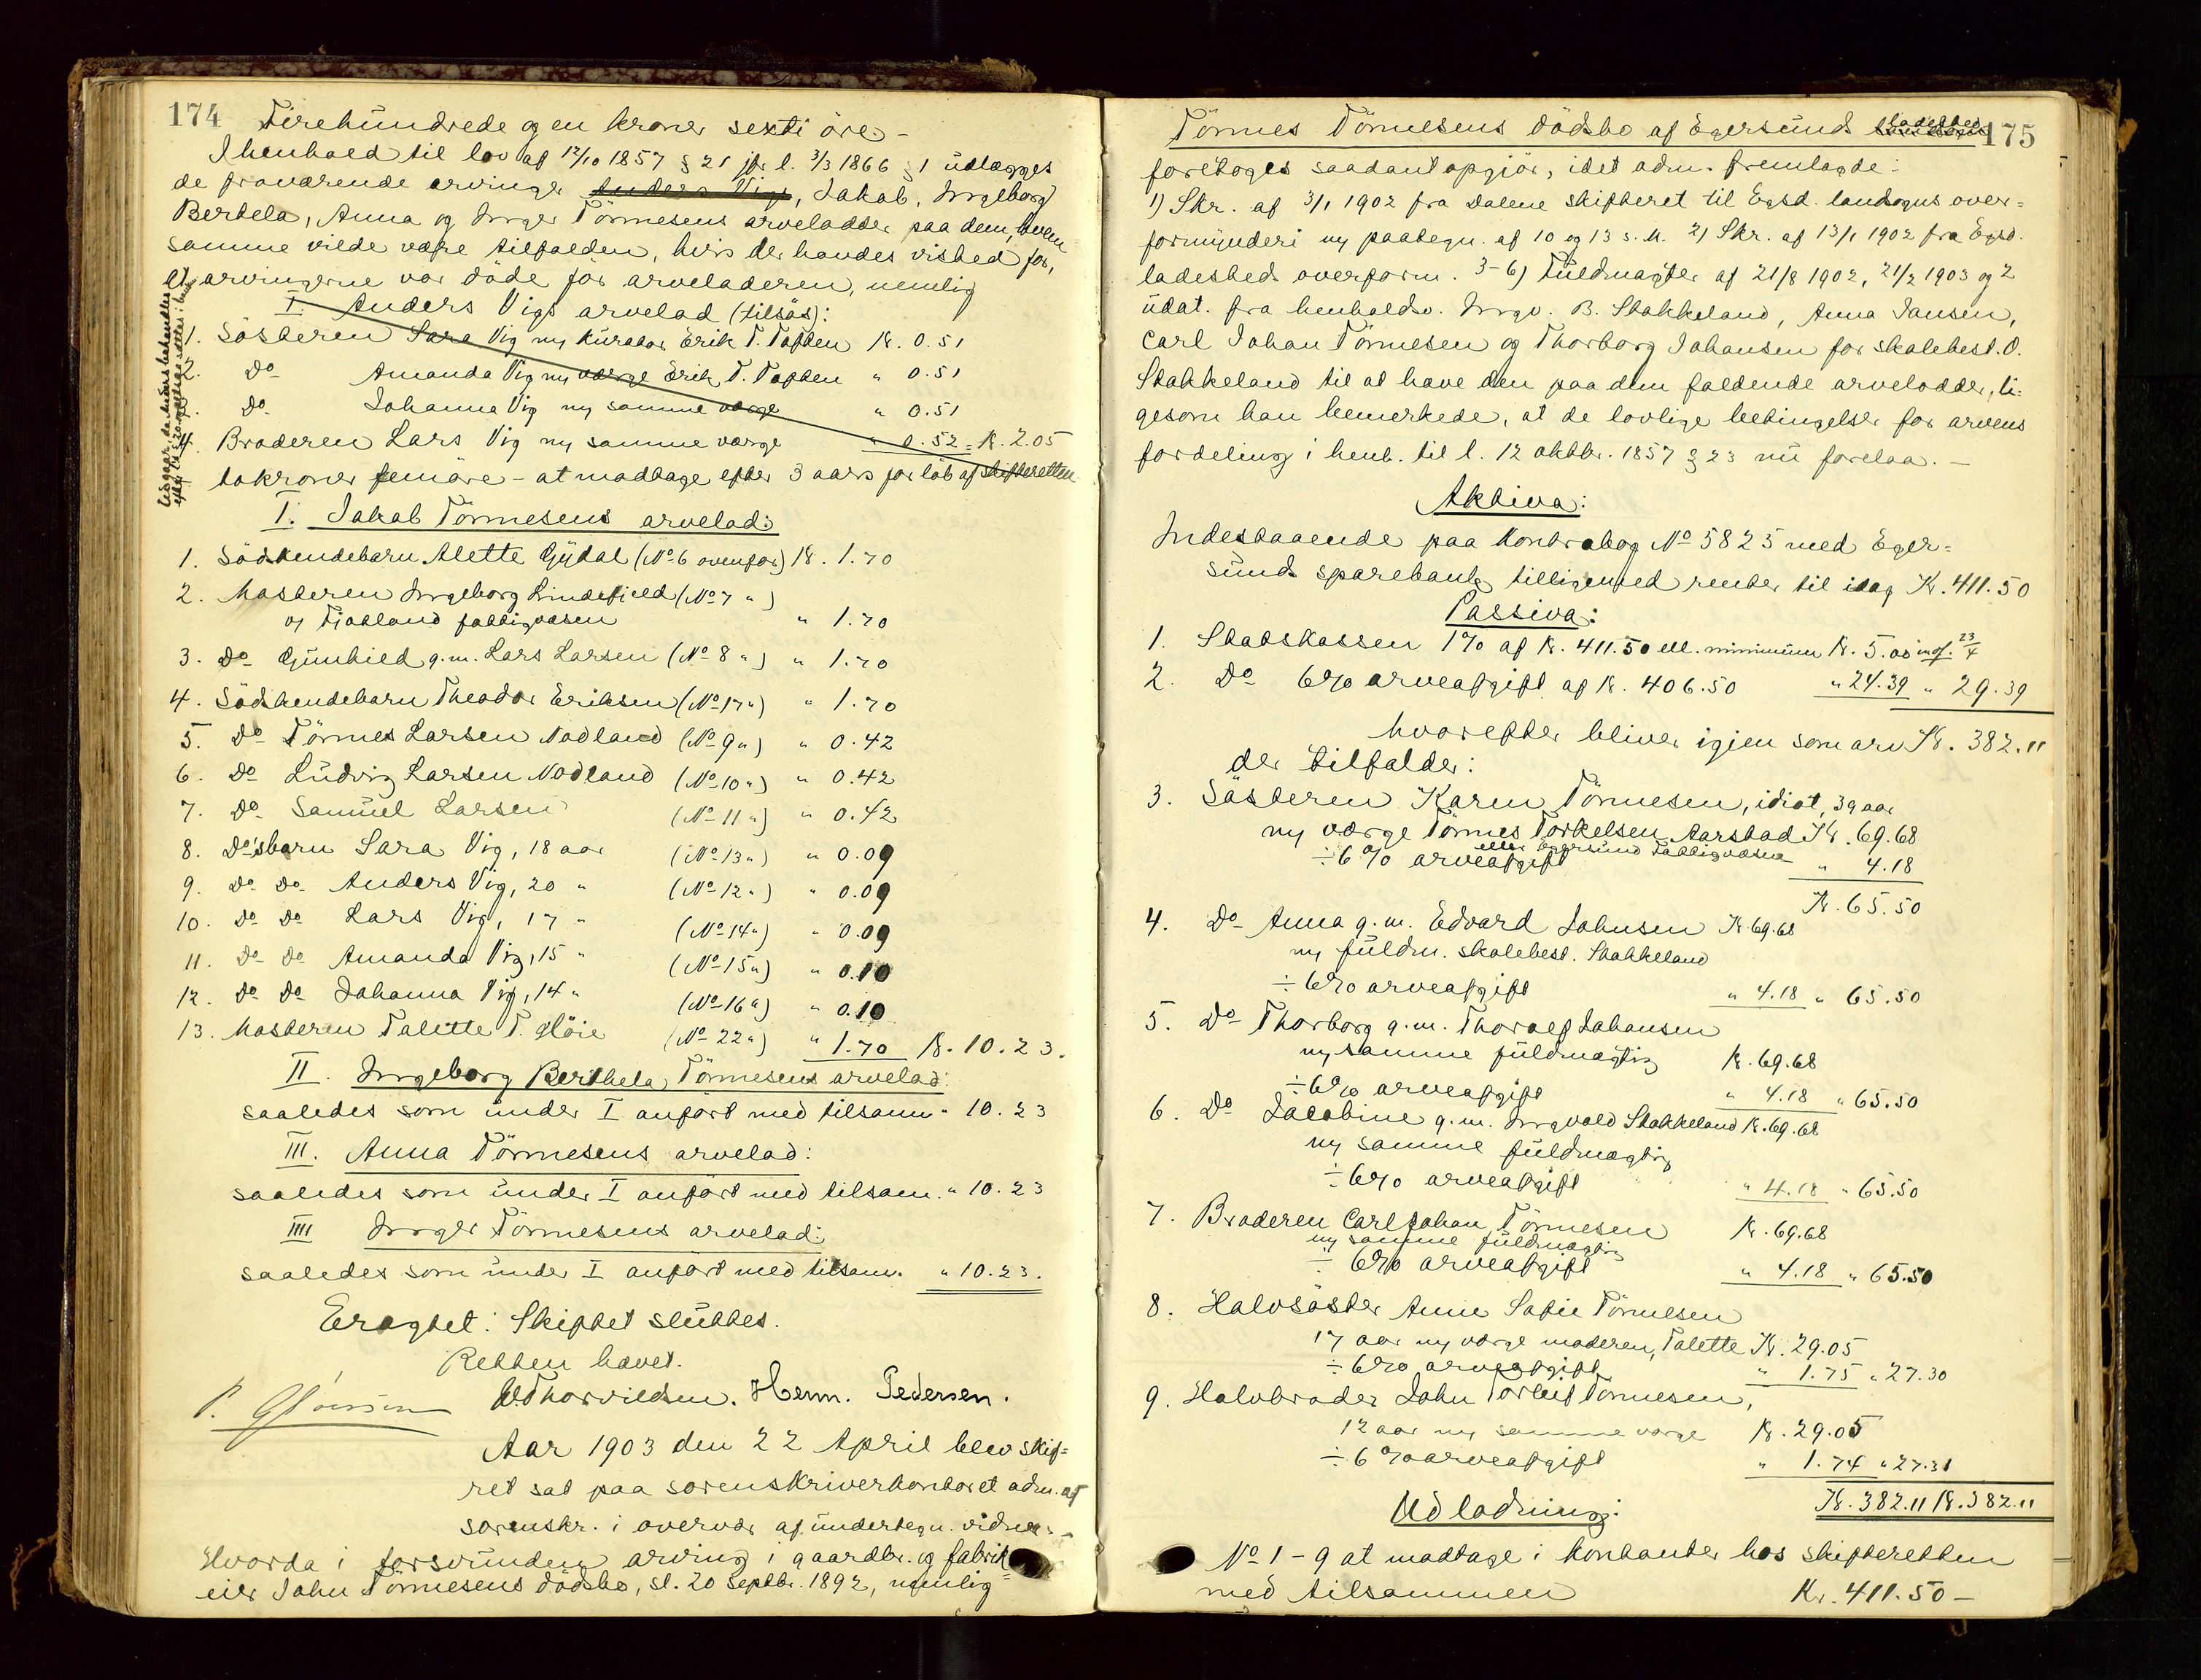 174
Firehundrede og en kroner sexti öre -
I henhold til lov af 12/10 1857 § 21 jfr. l. 3/3 1866 § 1 udlægges
de fraværende arvinge Anders Vigs, Jakob, Ingeborg
Berthela, Anna og Inger Törnnesens arvelodder paa dem, hvem
samme vilde være tilfalden, hvis der havdes vished for,
at arvingerne var döde för arveladeren, nemlig
I. Anders Vigs arvelod (tilsös):
1. Sösteren Sara Vig m kurator Erik T. Toften K. 0.51
2. Do Amanda Vig m værge Erik T. Toften " 0.51
3. Do Johanna Vig m samme værge " 0.51
4. Broderen Lars Vig m samme værge " 0.52 = K. 2.05
tokroner femöre - at modtage efter 3 aars forlöb af skifteretten
I. Jakob Törnnesens arvelod:
1. Södskendebarn Alette Gydal (No 6 ovenfor) K. 1.70
2. Mosteren Ingeborg Lindefjeld (No 7 ")
og Fjotland fattigvæsen " 1.70
3. Do Gunhild g.m. Lars Larsen (No 8 ") " 1.70
4. Södskendebarn Theodor Eriksen (No 17 ") " 1.70
5. Do Törnnes Larsen Nodland (No 9 ") " 0.42
6. Do Ludvig Larsen Nodland (No 10 ") " 0.42
7. Do Samuel Larsen (No 11 ") " 0.42
8. Do's barn Sara Vig, 18 aar (No 13 ") " 0.09
9. Do Do Anders Vig, 20 " (No 12 ") " 0.09
10. Do Do Lars Vig, 17 " (No 14 ") " 0.09
11. Do Do Amanda Vig, 15 " (No 15 ") " 0.10
12. Do Do Johanna Vig, 14 " (No 16 ") " 0.10
13. Mosteren Talette T. Höie (No 22 ") " 1.70 K. 10.23.
II. Ingeborg Berthela Törnnesens arvelod:
saaledes som under I anfört med tilsamm. " 10.23
III. Anna Törnnesens arvelod:
saaledes som under I anfört med tilsam. " 10.23
IIII Inger Törnnesens arvelod:
saaledes som under I anfört med tilsam. " 10.23.
Eragtet: Skiftet sluttes.
Retten hævet.
Thorvildsen. Herm. Pedersen.
Aar 1903 den 22 April blev skif=
ret sat paa sorenskriverkontoret adm. af
sorenskr. i overvær af undertegn. vidner. -
Hvorda i forsvunden arving i gaardbr. og fabrik=
eier John Törnnesens dödsbo, sl. 20 septbr. 1892, nemlig
175
Törnnes Törnnesens dödsbo af Egersund landsogn ladested
foretoges saadant opgjör, idet adm. fremlagde:
1) Skr. af 3/1 1902 fra Dalene skifteret til Egsd. landsogns over=
formynderi m paategn. af 10 og 13 s. M. 2) Skr. af 13/1 1902 fra Egsd.
ladesteds overform. 3-6) Fuldmagter af 21/8 1902, 21/2 1903 og 2
udat. fra henholdsv. Ingv. B. Stokkeland, Anna Jansen,
Carl Johan Törnnesen og Thorborg Johansen for skolebest. O.
Stokkeland til at hæve den paa dem faldende arvelodder, li=
gesom han bemerkede, at de lovlige betingelser for arvens
fordeling i henh. til l. 12 oktbr. 1857 § 23 nu forelaa. -
Aktiva:
Indestaaende paa Kontrabog No 5825 ved Eger=
sunds sparebank tilligemed renter til idag K. 411.50
Passiva:
1. Statskassen 1% af K. 411.50 ell. minimum K. 5.00
2. Do 6% arveafgift af K. 406.50 " 24.39 " 29.39
hvorefter bliver igjen som arv K. 382.11
der tilfalder:
3. Sösteren Karen Törnnesen, idiot, 39 aar
m værge Törnnes Torkelsen Aarstad K. 69.68
eller Egersund Fattigvæsen
÷ 6% arveafgift " 4.18
K. 65.50
4. Do Anna g.m. Edvard Johnsen K. 69.68
m fuldm. skolebest. Stokkeland
÷ 6% arveafgift " 4.18 " 65.50
5. Do Thorborg g.m. Thoralf Johansen
m samme fuldmægtig K. 69.68
÷ 6% arveafgift " 4.18 " 65.50
6. Do Jacobine g.m. Ingvald Stokkeland K. 69.68
m samme fuldmægtig
÷ 6% arveafgift " 4.18 " 65.50
7. Broderen Carl Johan Törnnesen K. 69.68
m samme fuldmægtig
÷ 6% arveafgift " 4.18 " 65.50
8. Halvsöster Anne Sofie Törnnesen
17 aar m værge moderen, Talette K. 29.05
÷ 6% arveafgift " 1.75 " 27.30
9. Halvbroder John Torleif Törnnesen,
12 aar m samme værge K. 29.05
÷ 6% arveafgift " 1.74 " 27.31
K. 382.11 K. 382.11
Udlodning:
No 1 - 9 at modtage i kontanter hos skifteretten
med tilsammen Kr. 411.50 -